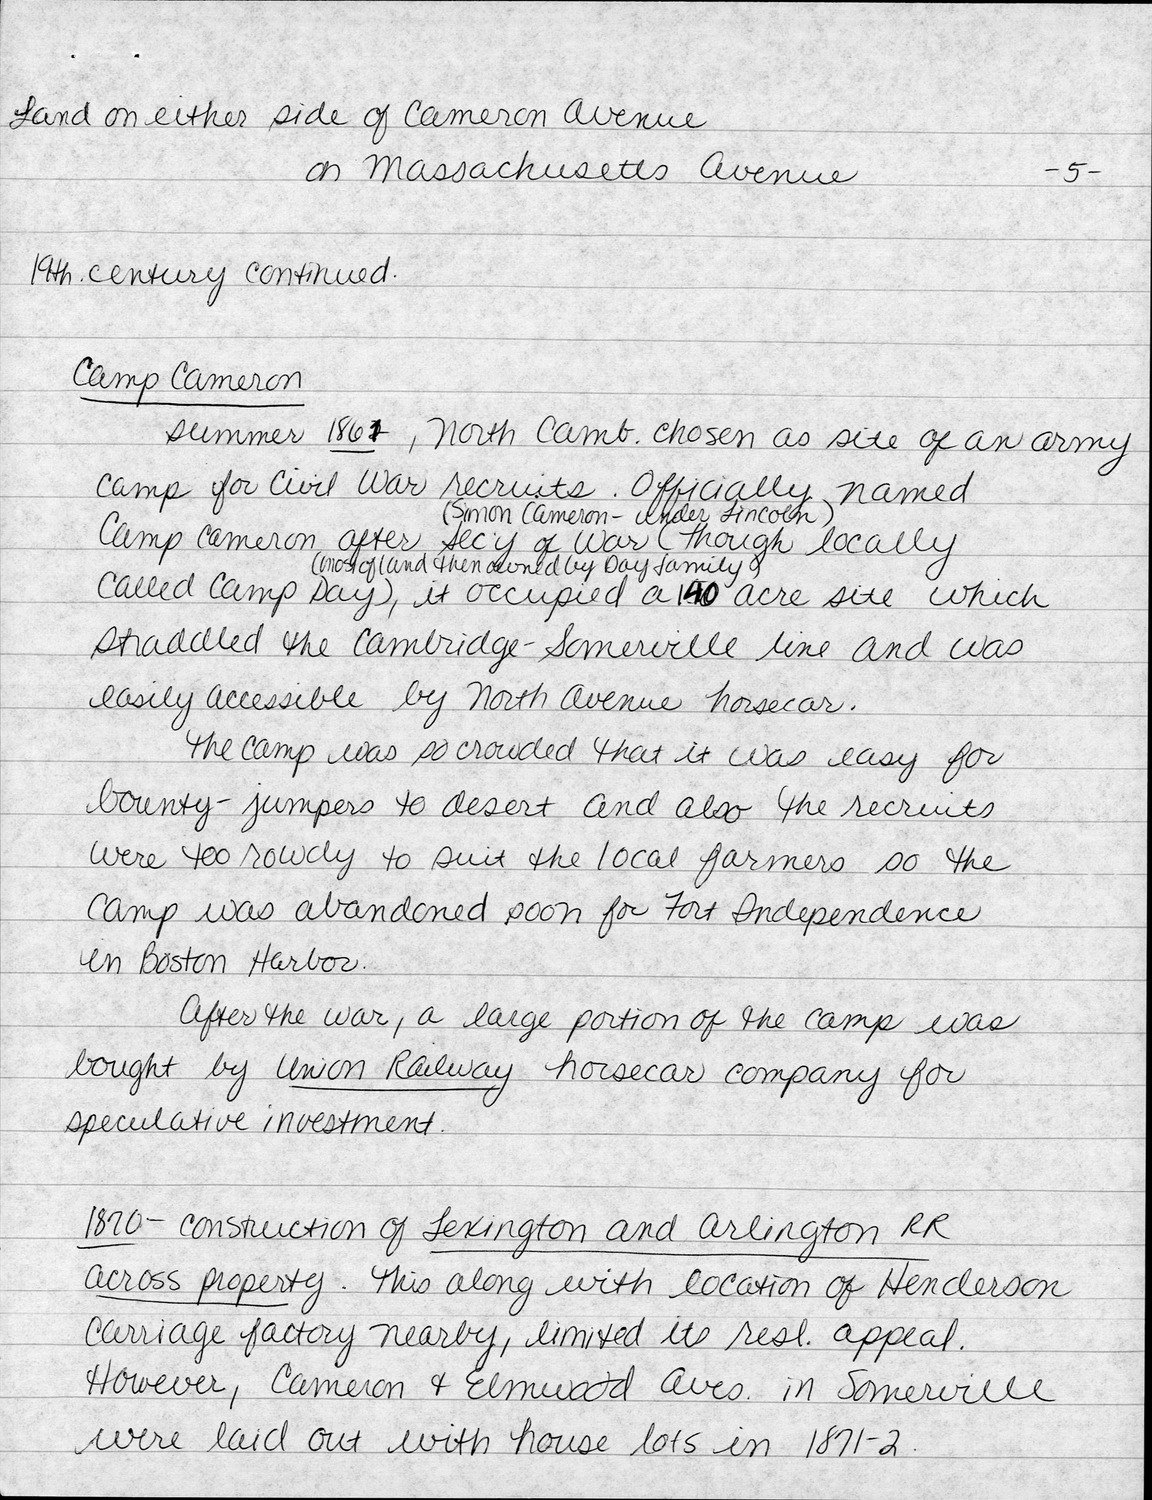 Land on either side of Cameron Avenue
on Massachusetts Avenue -5-
19th. century continued.
Camp Cameron
summer 1861, North Camb. chosen as site of an army
camp for Civil War recruits. Officially named
(Simon Cameron - under Lincoln)
Camp Cameron after Sec'y of War (though locally
(most of land then owned by Day family)
called Camp Day), it occupied a 140 acre site which
straddled the Cambridge-Somerville line and was
easily accessible by North Avenue horsecar.
The camp was so crowded that it was easy for
bounty-jumpers to desert and also the recruits
were too rowdy to suit the local farmers so the
camp was abandoned soon for Fort Independence
in Boston Harbor.
After the war, a large portion of the camp was
bought by Union Railway horsecar company for
speculative investment.
1870- construction of Lexington and Arlington RR
across property. This along with location of Henderson
Carriage factory nearby, limited its resl. appeal.
However, Cameron & Elmwood Aves. in Somerville
were laid out with house lots in 1871-2.